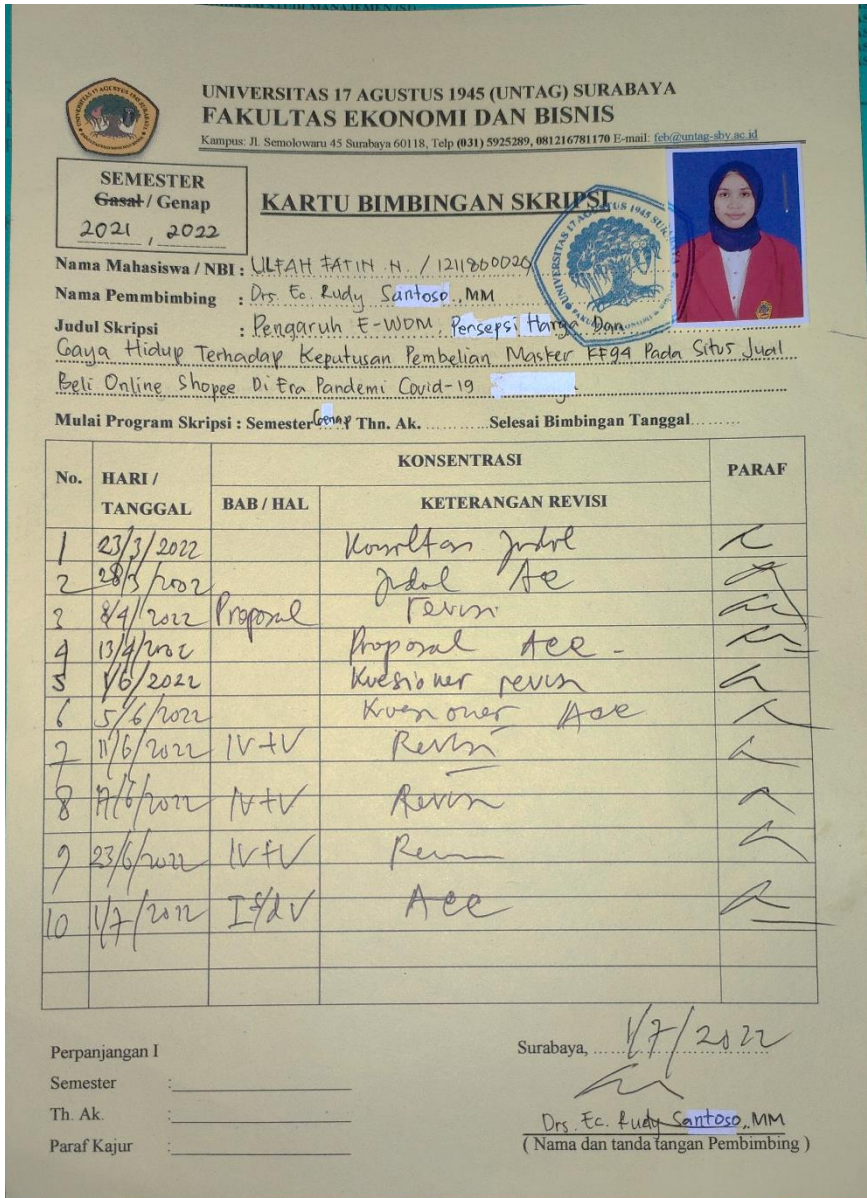 UNIVERSITAS 17 AGUSTUS 1945 (UNTAG) SURABAYA
FAKULTAS EKONOMI DAN BISNIS
Kampus: Jl. Semolowaru 45 Surabaya 60118, Telp (031) 5925289, 081216781170 E-mail: feb@untag-sby.ac.id
SEMESTER
Gasal / Genap
2021 , 2022
KARTU BIMBINGAN SKRIPSI
Nama Mahasiswa / NBI : ULFAH FATIN N. / 1211800020
Nama Pemmbimbing : Drs. Ec. Rudy Santoso., MM
Judul Skripsi : Pengaruh E-WOM, Persepsi Harga Dan
Gaya Hidup Terhadap Keputusan Pembelian Masker KF94 Pada Situs Jual
Beli Online Shopee Di Era Pandemi Covid-19
Mulai Program Skripsi : Semester Genap Thn. Ak. ............Selesai Bimbingan Tanggal.........
No. HARI / TANGGAL KONSENTRASI PARAF
BAB / HAL KETERANGAN REVISI
1 23/3/2022 Konsultasi Judul
2 28/3/2022 Judul Acc
3 8/4/2022 Proposal revisi
4 13/4/2022 Proposal Acc -
5 1/6/2022 Kuesioner revisi
6 5/6/2022 Kuesioner Acc
7 11/6/2022 IV+V Revisi
8 17/6/2022 IV+V Revisi
9 23/6/2022 IV+V Revisi
10 1/7/2022 I s/d V Acc
Surabaya, 1/7/2022
Perpanjangan I
Semester :
Th. Ak. :
Paraf Kajur :
Drs. Ec. Rudy Santoso., MM
( Nama dan tanda tangan Pembimbing )